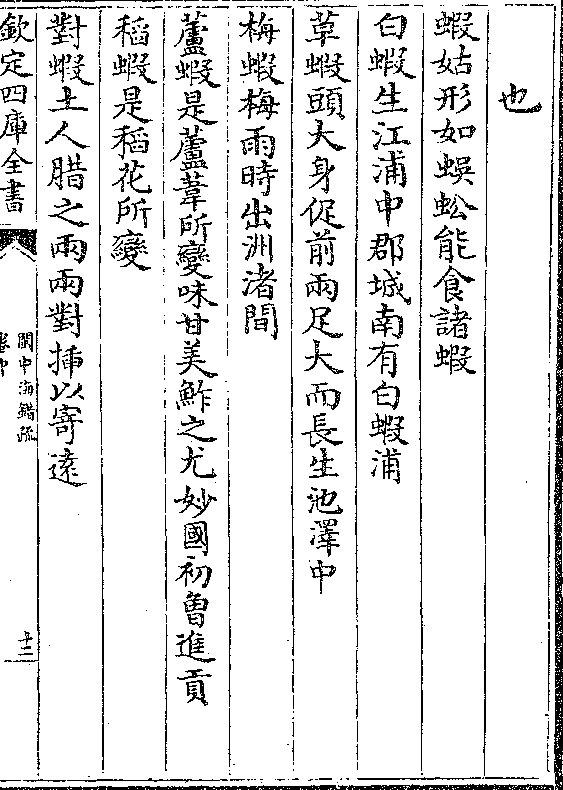 也
蝦姑形如蜈蚣能食諸蝦
白蝦生江浦中郡城南有白蝦浦
草蝦頭大身促前兩足大而長生池澤中
梅蝦梅雨時出洲渚間
蘆蝦是蘆葦所變味甘美鮓之尤妙國初曽進貢
稻蝦是稻花所變
對蝦土人腊之兩兩對揷以寄遠
欽定四庫全書
閩中海錯疏
卷中
十二